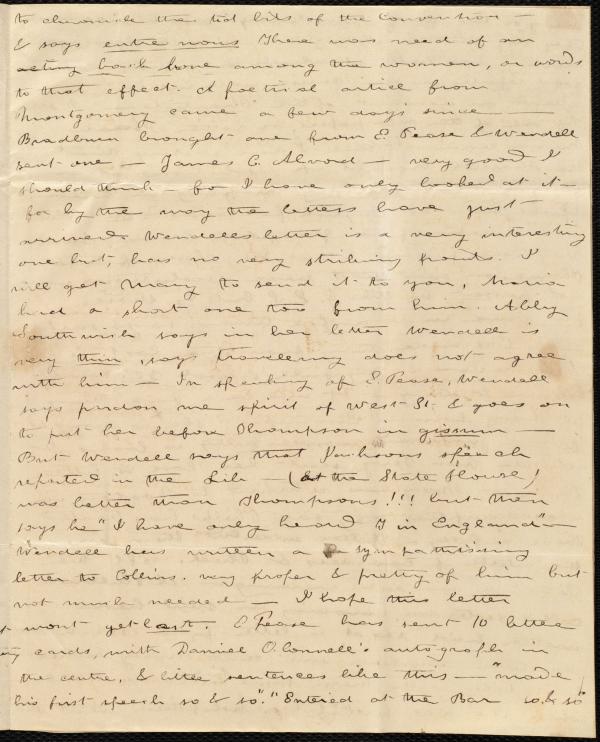 to chronicle the tid bits of the Convention —
& says entre nous there was need of an
acting back bone among the women, or words
to that effect. A poetical article from
Montgomery came a few days since —
Bradburn brought one from E. Pease & Wendell
sent one — James C. Alvord — very good I
should think — for I have only looked at it —
for by the way the letters have just
arrived. Wendell's letter is a very interesting
one but, has no very striking points. I
will get Mary to send it to you, Maria
had a short one too from him. Abby
Southwick says in her letter Wendell is
very thin, says travelling does not agree
with him — In speaking of E. Pease, Wendell
says pardon me spirit of West St. & goes on
to put her before Thompson in
But Wendell says that speech
reported in the Lib — (at the State House)
was better than Thompsons!!! but then
says he "I have only heard T in England" —
Wendell has written a sympathising
letter to Collins. very proper & pretty of him but
not much needed — I hope this letter
wont get lost. E Pease has sent 10 little
cards, with Daniel O.Connell's autograph in
the centre, & little sentences like this — "made
his first speech so & so". "Entered at the Bar so & so"